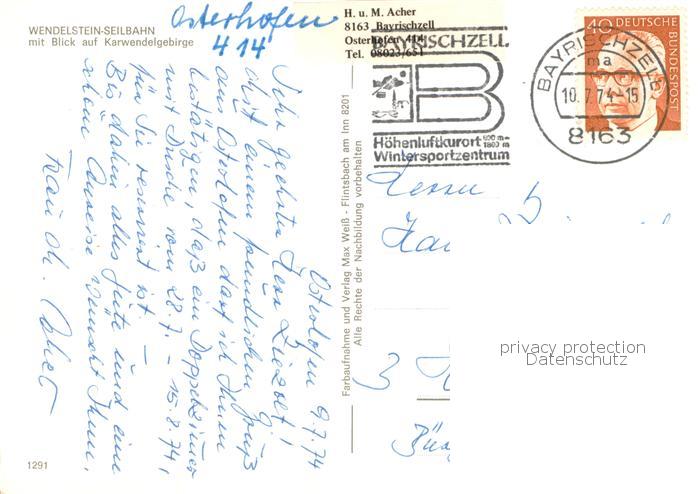 WENDELSTEIN-SEILBAHN
mit Blick auf Karwendelgebirge
Osterhofen
414
H. u. M. Acher
8163 Bayrischzell
Osterhofen 414
Tel. 08023/651
BAYRISCHZELL
B
Höhenluftkurort 800 m - 1800 m
Wintersportzentrum
BAYRISCHZELL
ma
10.7.74-15
8163
40 DEUTSCHE
BUNDESPOST
Osterhofen 9.7.74
Sehr geehrter Herr
Mit einem freundlichen Gruß
aus Osterhofen darf ich Ihnen
bestätigen, daß ein Doppelzimmer
mit Dusche vom 28.7. - 15.8.74,
für Sie reserviert ist -
Bis dahin alles Gute und eine
schöne Anreise wünscht Ihnen,
Frau M. Acher
Farbaufnahme und Verlag Max Weiß - Flintsbach am Inn 8201
Alle Rechte der Nachbildung vorbehalten
Herrn
3
privacy protection
Datenschutz
1291